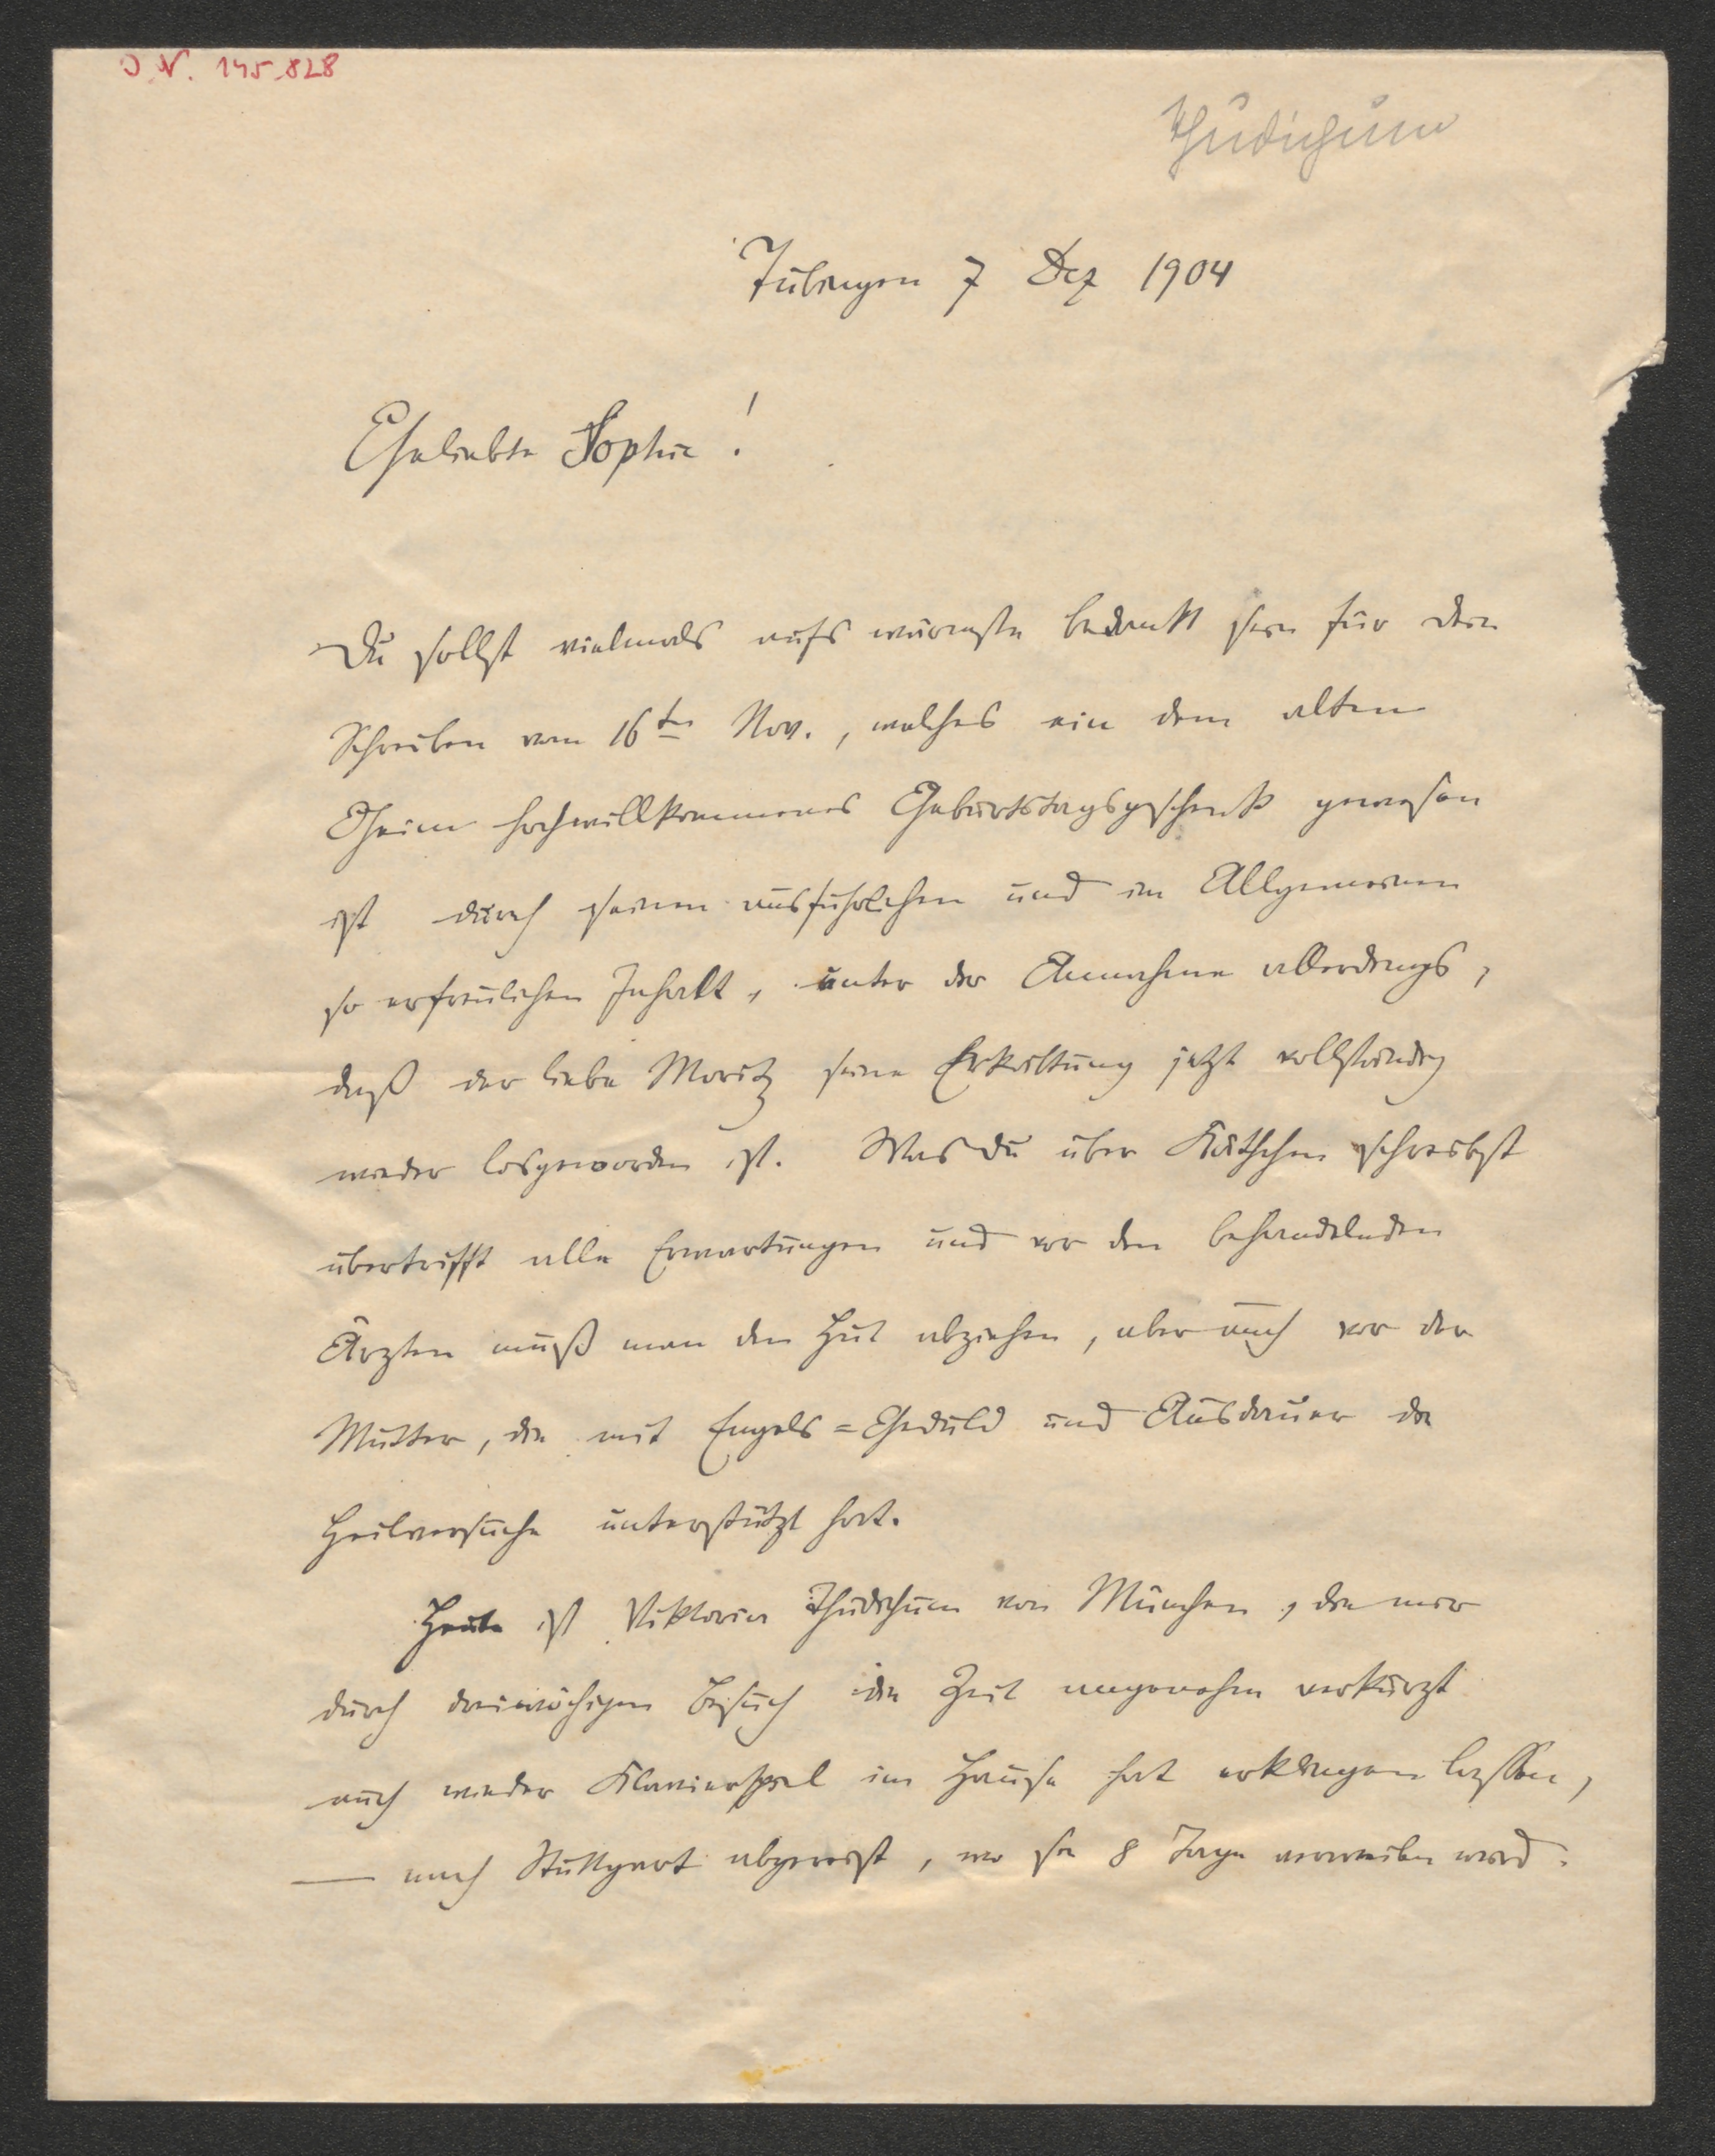 J. N. 145.828
Thudichum
Tübingen 7 Dez 1904
Geliebte Sophie!
Du sollst vielmals aufs wärmste bedankt sein für dein
Schreiben vom 16ten Nov., welches ein dem alten
Oheim hochwillkommenes Geburtstagsgeschenk gewesen
ist durch seinen ausführlichen und im Allgemeinen
so erfreulichen Inhalt, unter der Annahme allerdings,
daß der liebe Moritz seine Erkältung jetzt vollständig
wieder losgeworden ist. Was Du über Käthchen schreibst
übertrifft alle Erwartungen und vor den behandelnden
Ärzten muß man den Hut abziehen, aber auch vor der
Mutter, die mit Engels=Geduld und Ausdauer die
Heilversuche unterstützt hat.
Heute ist Viktoria Thudichum von München, die mir
durch dreiwöchigen Besuch die Zeit angenehm verkürzt
auch wieder Klavierspiel im Hause hat erklingen lassen,
— nach Stuttgart abgereist, wo sie 8 Tage verweilen wird.